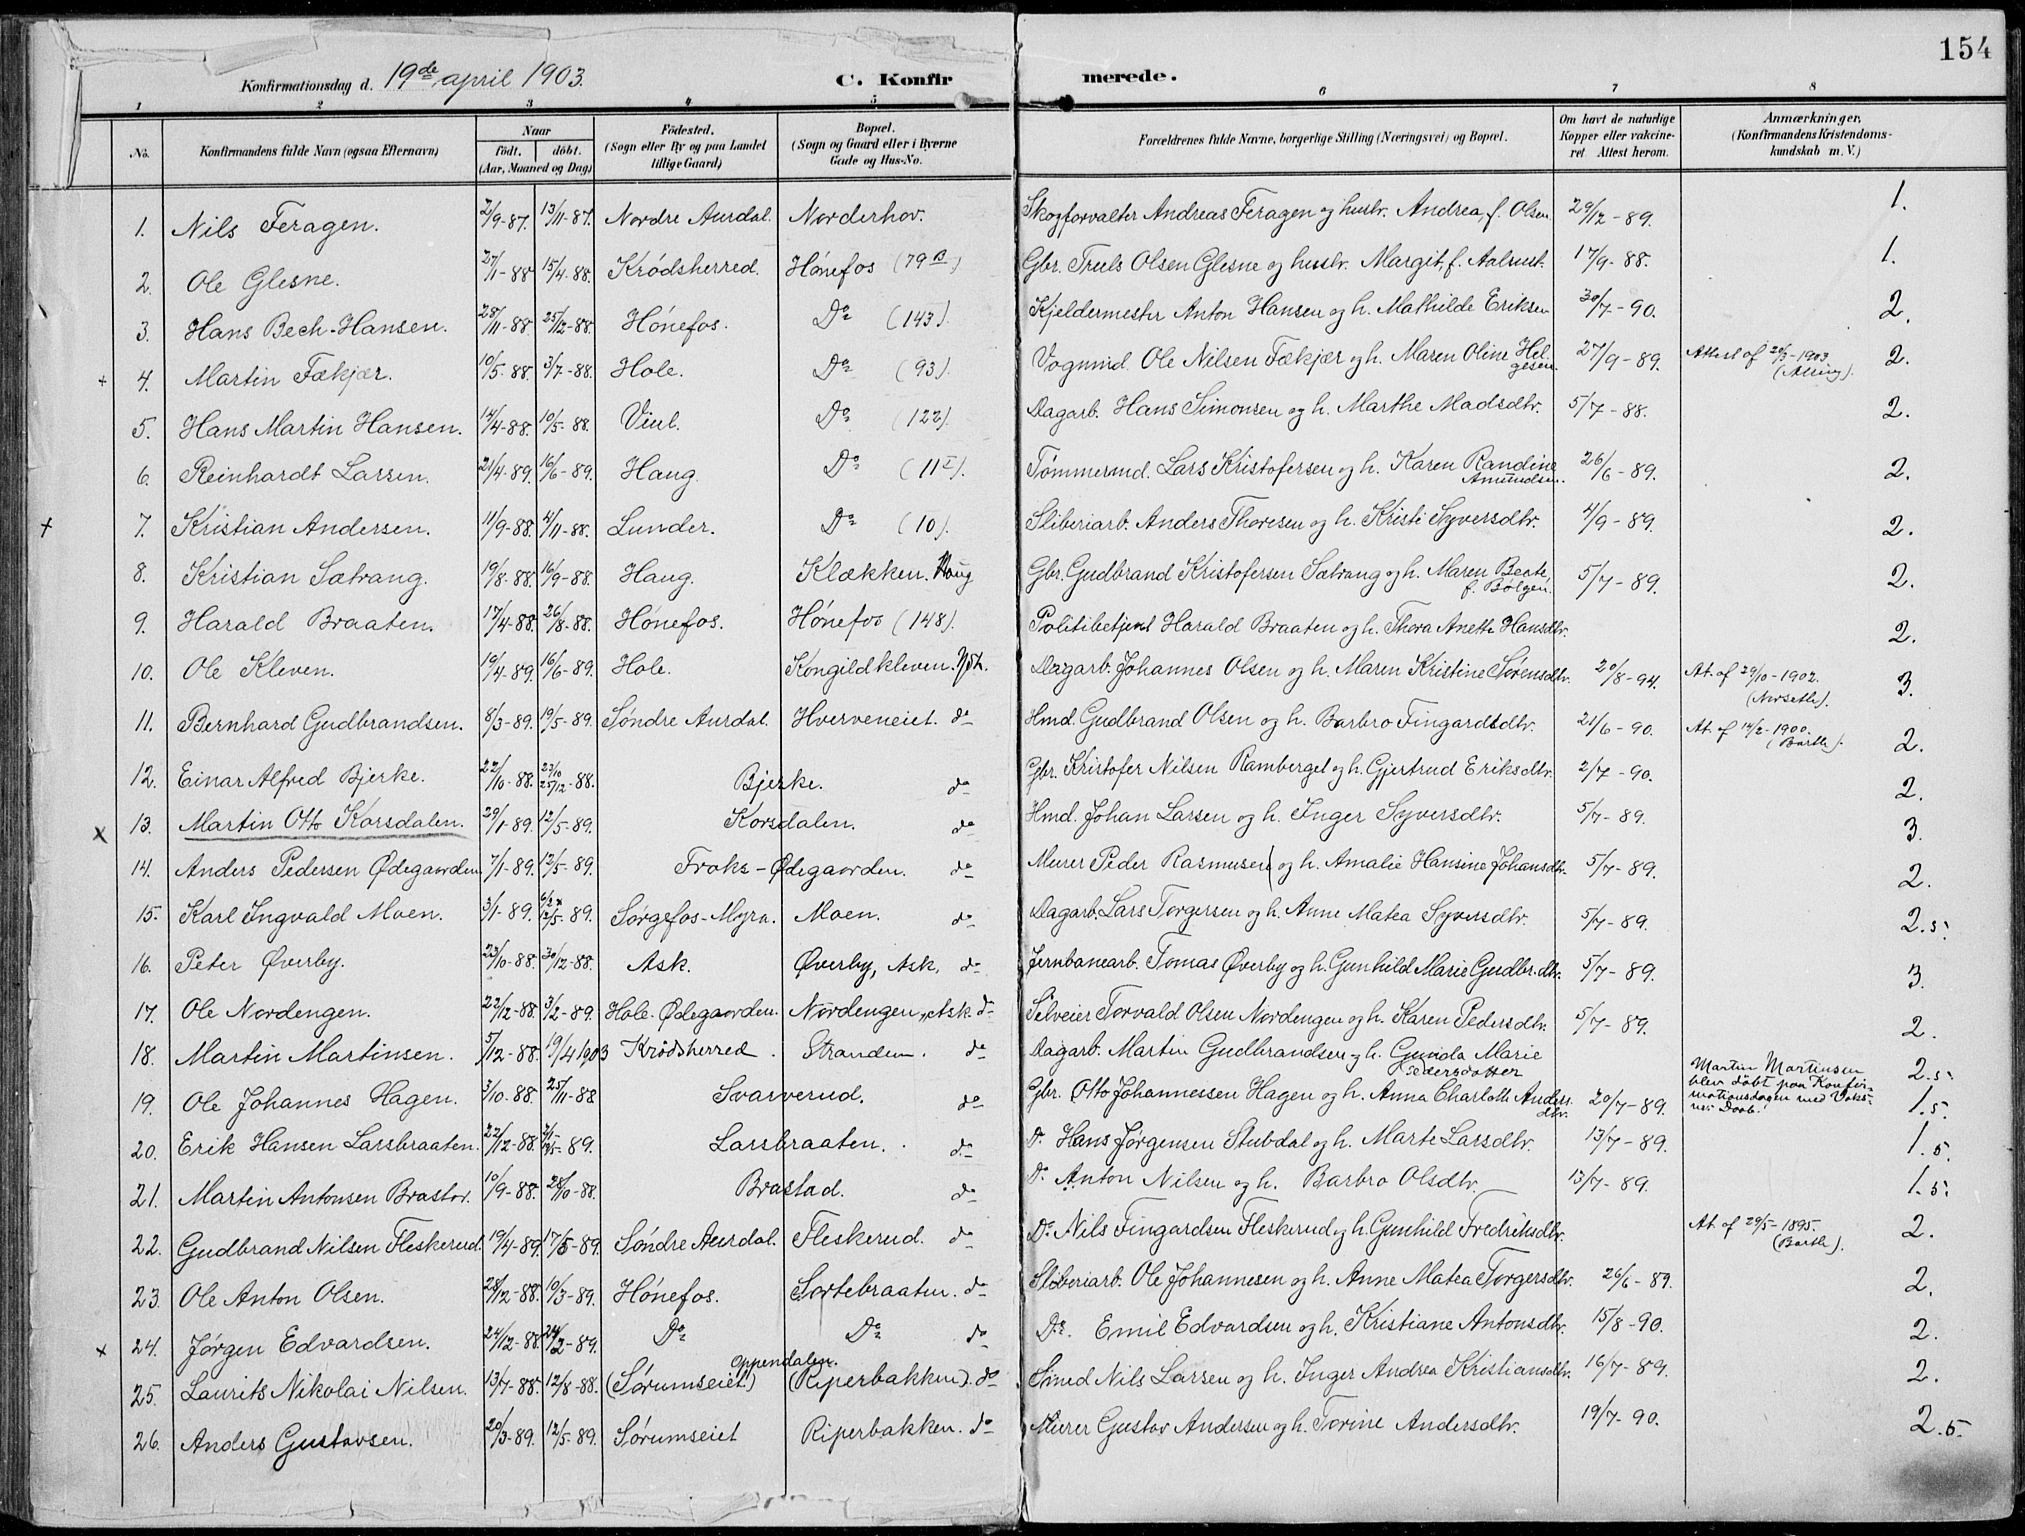 154
Konfirmationsdag d. 19de april 1903. C. Konfirmerede.
1 2 3 4 5 6 7 8
No. Konfirmandens fulde Navn (ogsaa Efternavn) Naar födt. döbt. (Aar, Maaned og Dag) Födested. (Sogn eller By og paa Landet tillige Gaard) Bopæl. (Sogn og Gaard eller i Byerne Gade og Hus-No. Forældrenes fulde Navne, borgerlige Stilling (Næringsvei) og Bopæl. Om havt de naturlige Kopper eller vakcineret Attest herom. Anmærkninger, (Konfirmandens Kristendomskundskab m. V.)
1. Nils Feragen. 2/9-87. 13/11-87. Nordre Aurdal. Norderhov. Skogforvalter Andreas Feragen og hustr. Andrea, f. Olsen. 29/12-89. 1.
2. Ole Glesne. 27/1-88 15/4-88. Krødsherred. Hønefos (79 B) Gbr. Truls Olsen Glesne og hustr. Margit, f. Aalrust. 17/9-88. 1.
3. Hans Bech-Hansen. 28/11-88. 25/12-88. Hønefos. Do (143). Kjeldermester Anton Hansen og h. Mathilde Eriksen 30/7-90. 2.
+ 4. Martin Fækjær. 10/5-88. 3/7-88. Hole. Do (93). Vognmd. Ole Nilsen Fækjær og h. Maren Oline Helgesen. 27/9-89. Attest af 20/3-1903. 2.
5. Hans Martin Hansen. 14/4-88. 10/5-88. Viul. Do (122). Dagarb. Hans Simonsen og h. Marthe Madsdtr. 5/7-88. 2.
6. Reinhardt Larsen. 21/4-89. 16/6-89. Haug. Do (11 I). Tømmermd. Lars Kristofersen og h. Karen Randine Amundsen. 26/6-89. 2.
+ 7. Kristian Andersen. 11/9-88. 4/11-88. Lunder. Do (10). Sliberiarb. Anders Thoresen og h. Kristi Syversdtr. 4/9-89. 2.
8. Kristian Sætrang. 19/8-88. 16/9-88. Haug. Klækken. Haug Gbr. Gudbrand Kristofersen Sætrang og h. Maren Beate, f. Bølgen. 5/7-89. 2.
9. Harald Braaten. 17/4-88. 26/8-88. Hønefos. Hønefos (148). Politibetjent Harald Braaten og h. Thora Anette Hansdtr. 2.
10. Ole Kleven. 19/4-89. 16/6-89. Hole. Kongildkleven. Dagarb. Johannes Olsen og h. Maren Kristine Sørensdtr. 20/8-94. At. af 29/10-1902. 3.
11. Bernhard Gudbrandsen. 8/3-89. 19/5-89. Søndre Aurdal. Hverveneiet. do Hmd. Gudbrand Olsen og h. Barbro Fingardtdtr. 21/6-90. At. af 14/2-1900. (Barth). 2.
12. Einar Alfred Bjerke. 22/10-88. 23/10 25/12-88. Bjerke. do Gbr. Kristofer Nilsen Ramberget og h. Gjertrud Eriksdtr. 2/7-90. 2.
x 13. Martin Otto Korsdalen. 29/1-89. 12/5-89. Korsdalen. do Hmd. Johan Larsen og h. Inger Syversdtr. 5/7-89. 3.
14. Anders Pedersen Ødegaarden. 7/1-89. 12/5-89. Froks-Ødegaarden. do Murer Peder Rasmusen og h. Amalie Hansine Johansdtr. 5/7-89. 2.
15. Karl Ingvald Moen. 3/1-89. 12/5-89. Sørgefos-Myra. Moen. do Dagarb. Lars Torgersen og h. Anne Matea Syversdtr. 5/7-89. 2.5.
16. Peter Øverby. 23/10-88. 30/12-88. Ask. Øverby, Ask, do Jernbanearb. Tomas Øverby og h. Gunhild Marie Gudbr.dtr. 5/7-89. 3.
17. Ole Nordengen. 22/12-88. 3/2-89. Hole-Ødegaarden. Nordengen, Ask. do Selveier Torvald Olsen Nordengen og h. Karen Pedersdtr. 5/7-89. 2.
18. Martin Martinsen. 5/12-88. 19/4 1903 Krødsherred. Stranden. do Dagarb. Martin Gudbrandsen og h. Gunda Marie Pedersdatter Martin Martinsen blev døbt paa Konfirmationsdagen med Voksnes Daab! 2.5.
19. Ole Johannes Hagen. 3/10-88. 25/11-88 Svarverud. do Gbr. Otto Johannessen Hagen og h. Anna Charlotte Andersdtr. 20/7-89. 1.5.
20. Erik Hansen Larsbraaten. 22/12-88. 89. Larsbraaten. do Do Hans Jørgensen Stubdal og h. Marte Larsdtr. 13/7-89. 1.5.
21. Martin Antonsen Brastad. 10/9-88. 28/10-88. Brastad. do Do Anton Nilsen og h. Barbro Olsdtr. 13/7-89. 1.5.
22. Gudbrand Nilsen Fleskerud. 19/4-89. 17/5-89. Søndre Aurdal. Fleskerud. do Do Nils Fingardsen Fleskerud og h. Gunhild Fredriksdtr. At. af 29/5-1895. (Barth). 2.
23. Ole Anton Olsen. 28/12-88. 10/3-89. Hønefos. Sortebraaten. do Sliberiarb. Ole Johannesen og h. Anne Matea Torgersdtr. 26/6-89. 2.
x 24. Jørgen Edvardsen. 24/12-88. 24/2-89. Do Do do Do. Emil Edvardsen og h. Kristiane Antonsdtr. 15/8-90. 2.
25. Laurits Nikolai Nilsen. 13/7-88. 12/8-88. (Sørumseiet) Oppendalen. (Riperbakken). do Smed Nils Larsen og h. Inger Andrea Kristiansdtr. 16/7-89. 2.
26. Anders Gustavsen. 20/3-89. 12/5-89. Sørumseiet Riperbakken. do Murer Gustav Andersen og h. Torine Andersdtr. 19/7-90. 2.5.